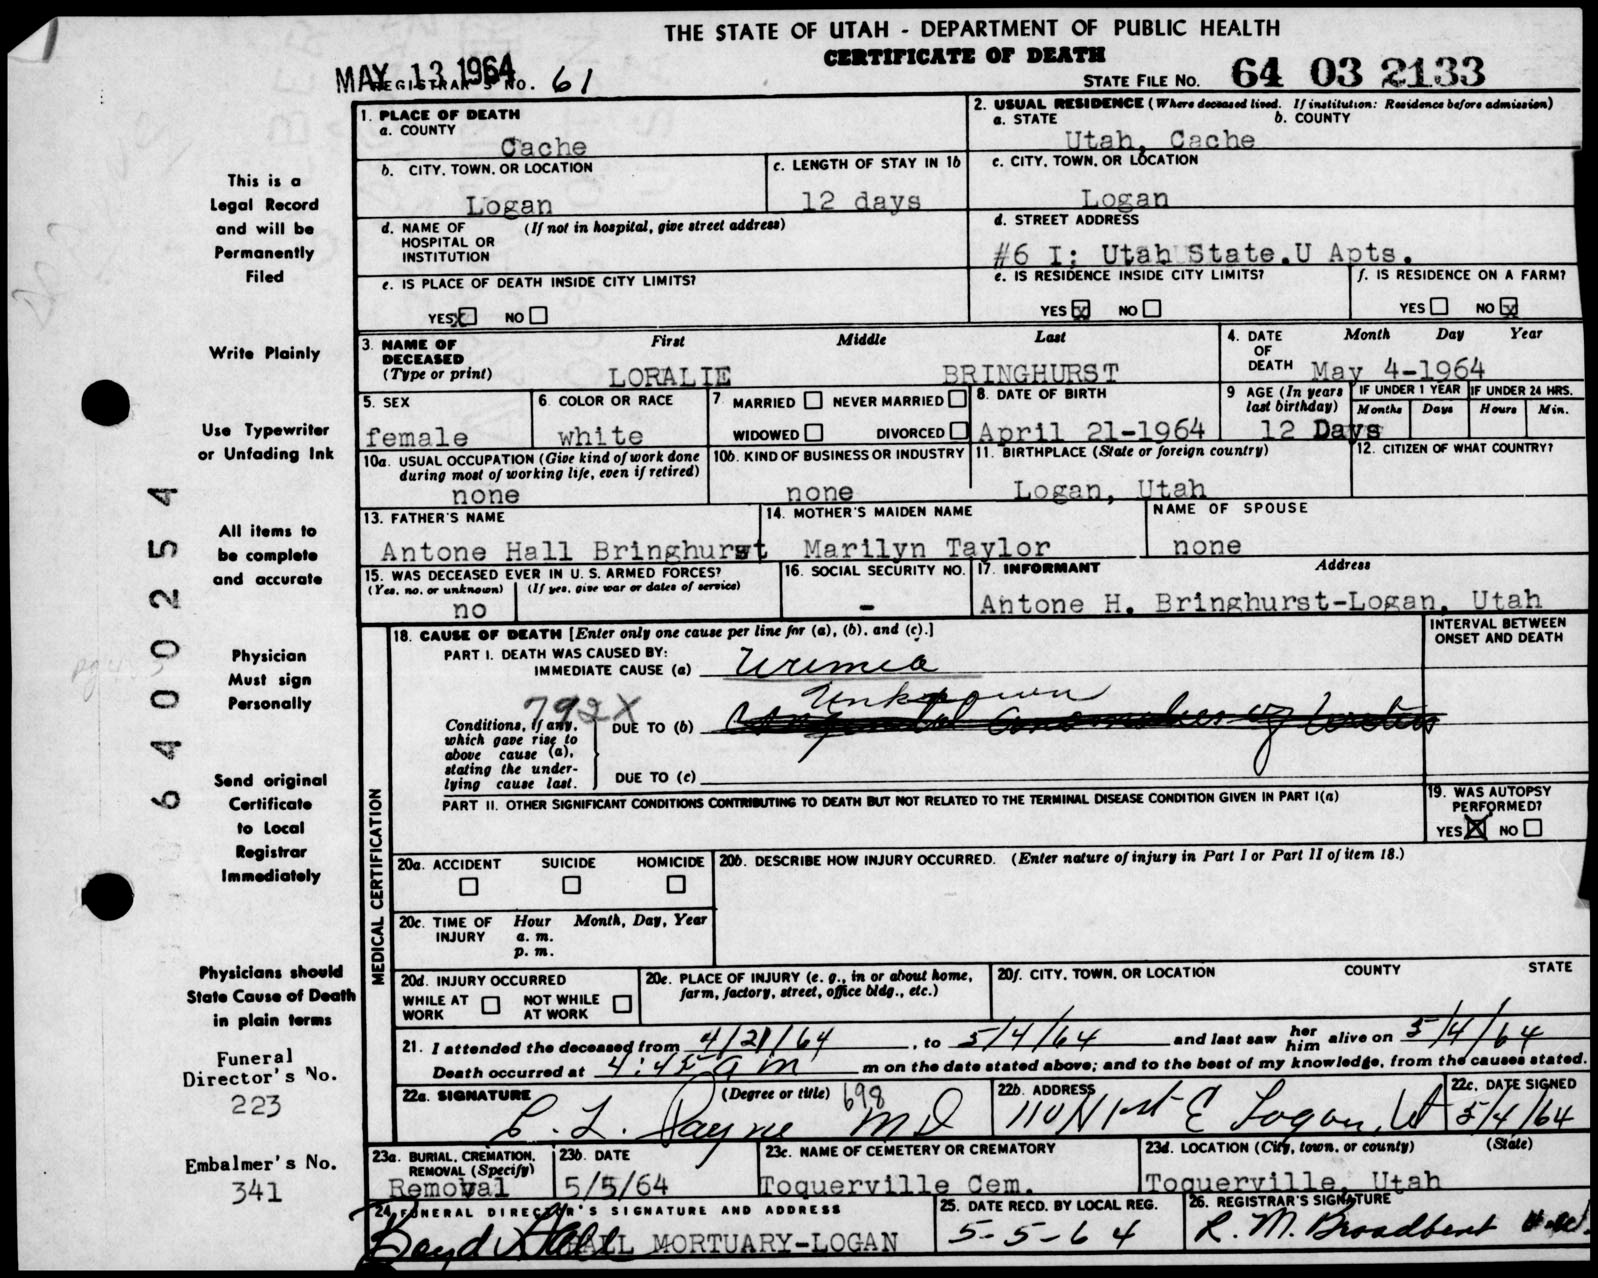 THE STATE OF UTAH - DEPARTMENT OF PUBLIC HEALTH
CERTIFICATE OF DEATH
MAY 13 1964
REGISTRAR'S NO. 61
STATE FILE NO. 64 03 2133
1. PLACE OF DEATH
a. COUNTY
Cache
2. USUAL RESIDENCE (Where deceased lived. If institution: Residence before admission)
a. STATE b. COUNTY
Utah, Cache
b. CITY, TOWN, OR LOCATION
Logan
c. LENGTH OF STAY IN 1b
12 days
c. CITY, TOWN, OR LOCATION
Logan
d. NAME OF HOSPITAL OR INSTITUTION (If not in hospital, give street address)
d. STREET ADDRESS
#6 I; Utah State.U Apts.
e. IS PLACE OF DEATH INSIDE CITY LIMITS?
YES X NO
e. IS RESIDENCE INSIDE CITY LIMITS?
YES X NO
f. IS RESIDENCE ON A FARM?
YES NO X
3. NAME OF DECEASED (Type or print)
First Middle Last
LORALIE BRINGHURST
4. DATE OF DEATH Month Day Year
May 4-1964
5. SEX
female
6. COLOR OR RACE
white
7. MARRIED NEVER MARRIED
WIDOWED DIVORCED
8. DATE OF BIRTH
April 21-1964
9 AGE (In years last birthday)
IF UNDER 1 YEAR IF UNDER 24 HRS.
Months Days Hours Min.
12 Days
10a. USUAL OCCUPATION (Give kind of work done during most of working life, even if retired)
none
10b. KIND OF BUSINESS OR INDUSTRY
none
11. BIRTHPLACE (State or foreign country)
Logan, Utah
12. CITIZEN OF WHAT COUNTRY?
13. FATHER'S NAME
Antone Hall Bringhurst
14. MOTHER'S MAIDEN NAME
Marilyn Taylor
NAME OF SPOUSE
none
15. WAS DECEASED EVER IN U. S. ARMED FORCES?
(Yes, no, or unknown) (If yes, give war or dates of service)
no
16. SOCIAL SECURITY NO.
-
17. INFORMANT Address
Antone H. Bringhurst-Logan, Utah
MEDICAL CERTIFICATION
18. CAUSE OF DEATH [Enter only one cause per line for (a), (b), and (c).]
INTERVAL BETWEEN ONSET AND DEATH
PART I. DEATH WAS CAUSED BY:
IMMEDIATE CAUSE (a) Uremia
792X
Unknown
Conditions, if any, which gave rise to above cause (a), stating the underlying cause last.
DUE TO (b)
DUE TO (c)
PART II. OTHER SIGNIFICANT CONDITIONS CONTRIBUTING TO DEATH BUT NOT RELATED TO THE TERMINAL DISEASE CONDITION GIVEN IN PART I(a)
19. WAS AUTOPSY PERFORMED?
YES X NO
20a. ACCIDENT SUICIDE HOMICIDE
20b. DESCRIBE HOW INJURY OCCURRED. (Enter nature of injury in Part I or Part II of item 18.)
20c. TIME OF INJURY Hour Month, Day, Year
a. m.
p. m.
20d. INJURY OCCURRED
WHILE AT WORK NOT WHILE AT WORK
20e. PLACE OF INJURY (e. g., in or about home, farm, factory, street, office bldg., etc.)
20f. CITY, TOWN, OR LOCATION COUNTY STATE
21. I attended the deceased from 4/21/64, to 5/4/64 and last saw her him alive on 5/4/64
Death occurred at 4:45 a m m on the date stated above; and to the best of my knowledge, from the causes stated.
22a. SIGNATURE (Degree or title) 698
C. L. Payne MD
22b. ADDRESS
110 N 1st E Logan, Ut
22c. DATE SIGNED
5/4/64
23a. BURIAL, CREMATION, REMOVAL (Specify)
Removal
23b. DATE
5/5/64
23c. NAME OF CEMETERY OR CREMATORY
Toquerville Cem.
23d. LOCATION (City, town, or county) (State)
Toquerville, Utah
24. FUNERAL DIRECTOR'S SIGNATURE AND ADDRESS
Boyd Hall HALL MORTUARY-LOGAN
25. DATE RECD. BY LOCAL REG.
5-5-64
26. REGISTRAR'S SIGNATURE
R. M. Broadbent
This is a
Legal Record
and will be
Permanently
Filed
Write Plainly
Use Typewriter
or Unfading Ink
All items to
be complete
and accurate
Physician
Must sign
Personally
Send original
Certificate
to Local
Registrar
Immediately
Physicians should
State Cause of Death
in plain terms
Funeral
Director's No.
223
Embalmer's No.
341
6400254